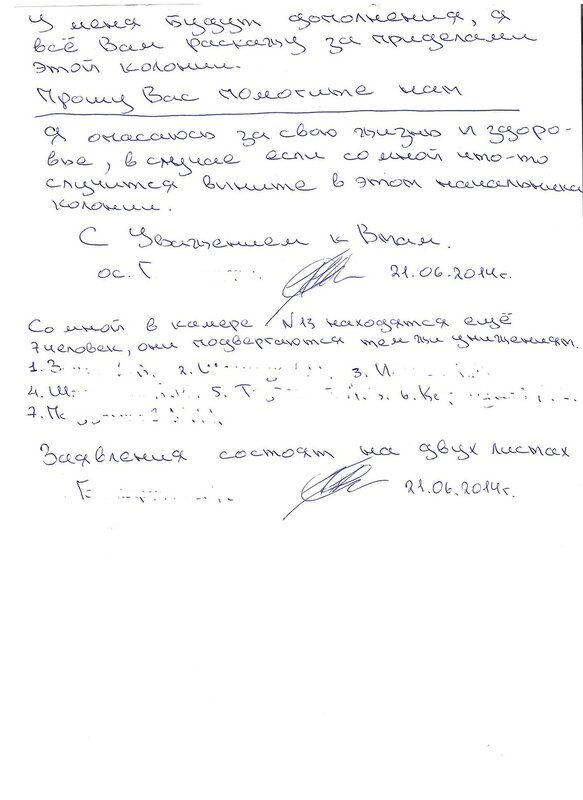 У меня будут дополнения, я
всё Вам раскажу за приделами
этой колонии.
Прошу Вас помогите нам
Я опасаюсь за свою жизнь и здоро-
вье, в случае если со мной что-то
случится вините в этом начальника
колонии.
С Уважением к Вам.
ос. Г 21.06.2014г.
Со мной в камере №13 находятся ещё
7человек, они подвергаются тем жи унижениям.
1. З 2. 3. И
4. Ш 5. Т 6. Ко
7. Мс
Заявления состоят на двух листах
Г 21.06.2014г.